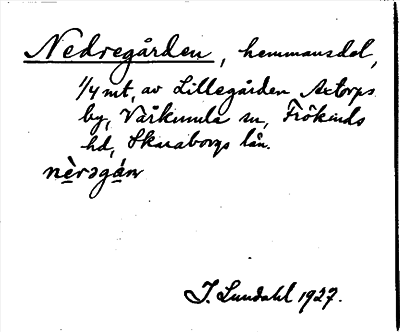 Nedregården, hemmansdel,
1/4 mt, av Lillegården Axtorps
by, Vårkumla sn, Frökinds
hd, Skaraborgs län.
nè̱rəgá̱ṇ
J. Lundahl 1927.